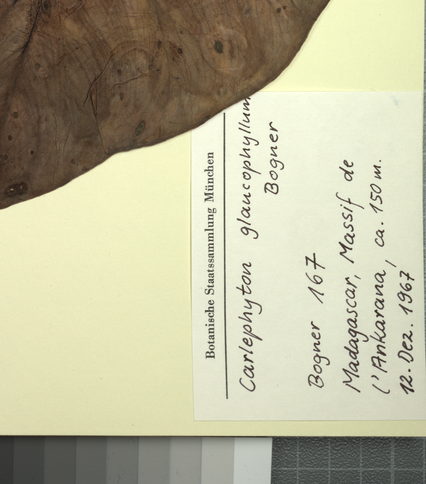 Botanische Staatssammlung München
Carlephyton glaucophyllum
Bogner
Bogner 167
Madagascar, Massif de
l'Ankarana, ca. 150 m.
12. Dez. 1967